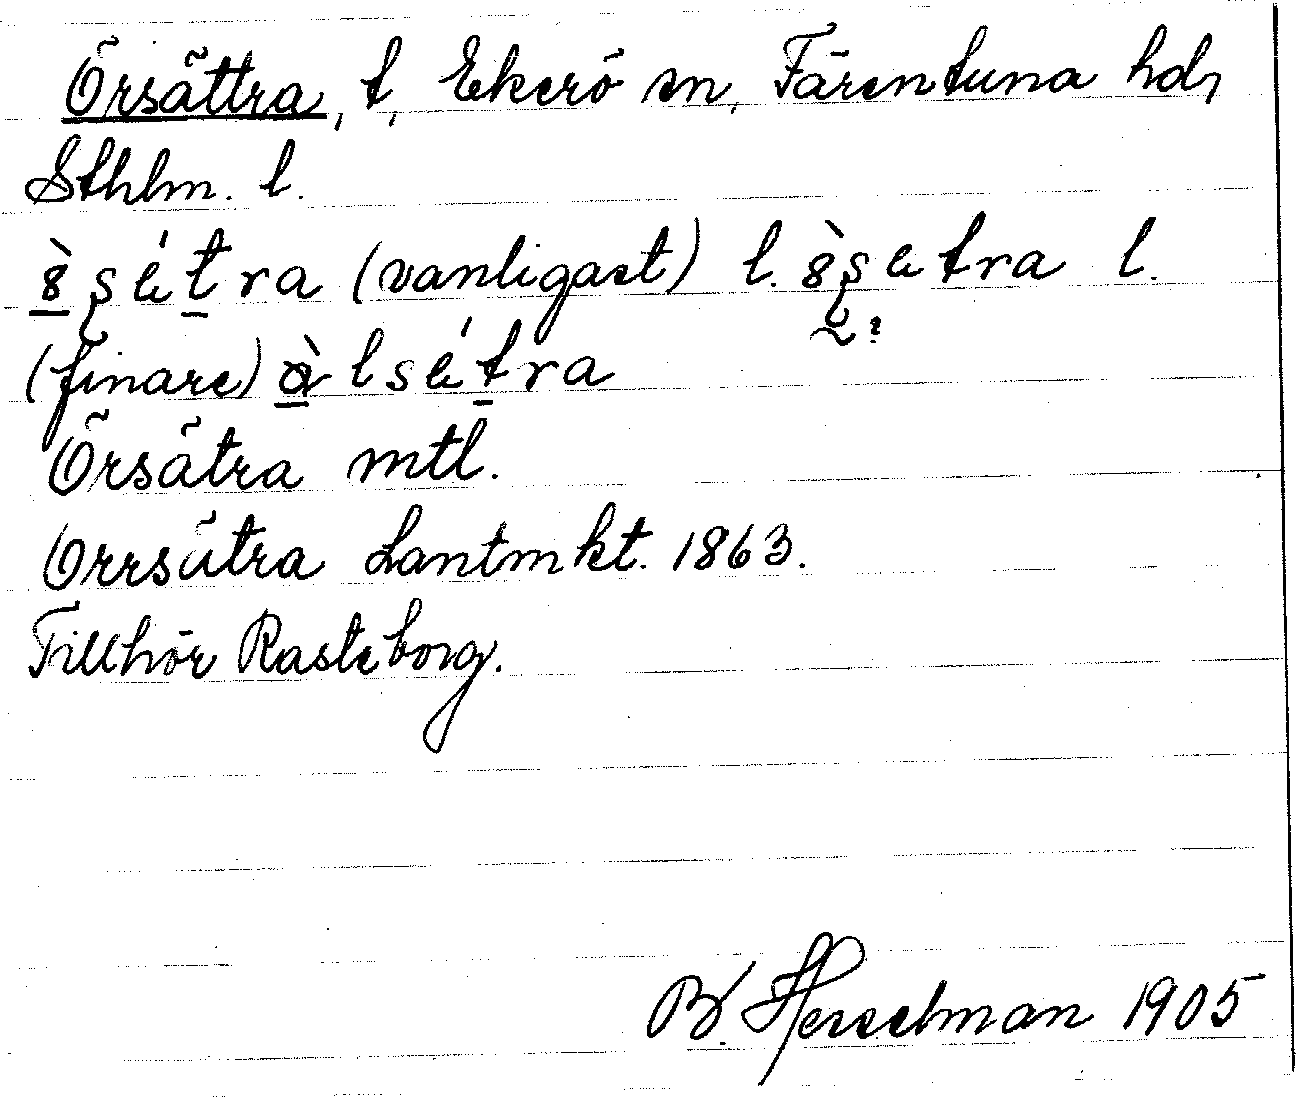 Örsättra, t, Ekerö sn, Färentuna hd,
Sthlm. l.
(vanligast) l.  l.
(finare)
Örsätra mtl.
Orrsätra Lantmkt. 1863.
Tillhör Rasteborg.
B. Hesselman 1905